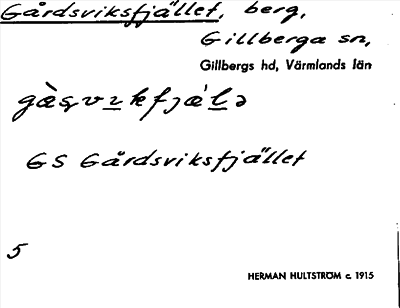 Gårdsviksfjället, berg,
Gillberga sn,
Gillbergs hd, Värmlands län
GS Gårdsviksfjället
5
HERMAN HULTSTRÖM c. 1915